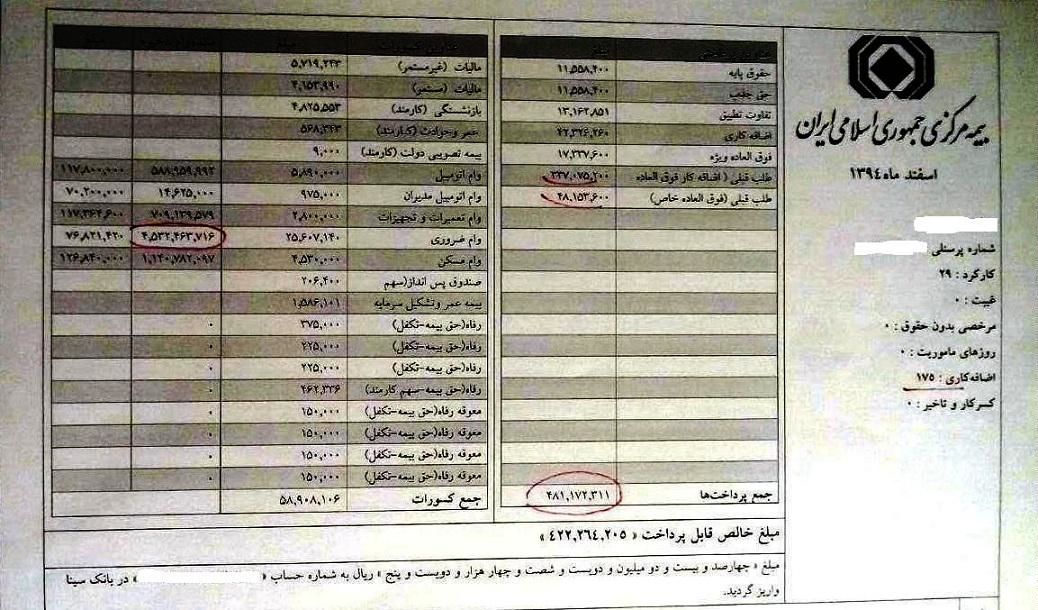 بیمه مرکزی جمهوری اسلامی ایران
اسفند ماه ۱۳۹٤
شماره پرسنلی
کارکرد : ۲۹
غیبت : ۰
مرخصی بدون حقوق : ۰
روزهای ماموریت : ۰
اضافه‌کاری : ۱۷۵
کسرکار و تاخیر : ۰
حقوق پایه ۱۱,۵۵۸,۴۰۰
حق جذب ۱۱,۵۵۸,۴۰۰
تفاوت تطبیق ۱۳,۱۶۲,۸۵۱
اضافه کاری ۴۲,۳۲۶,۲۶۰
فوق العاده ویژه ۱۷,۳۳۷,۶۰۰
طلب قبلی ( اضافه کار فوق العاده ۳۳۷,۰۷۵,۲۰۰
طلب قبلی (فوق العاده خاص) ۴۸,۱۵۳,۶۰۰
جمع پرداخت‌ها ۴۸۱,۱۷۲,۳۱۱
عناوین کسورات
مالیات (غیرمستمر) ۵,۷۱۹,۲۴۳
مالیات (مستمر) ۴,۱۵۳,۹۹۰
بازنشستگی (کارمند) ۴,۸۲۵,۵۵۳
عمر وحوادث (کارمند) ۵۶۸,۳۴۳
بیمه تصویبی دولت (کارمند) ۹,۰۰۰
وام اتومبیل ۵,۸۹۰,۰۰۰ ۵۸۸,۹۵۹,۹۹۲ ۱۱۷,۸۰۰,۰۰۰
وام اتومبیل مدیران ۹۷۵,۰۰۰ ۱۴,۶۲۵,۰۰۰ ۷۰,۲۰۰,۰۰۰
وام تعمیرات و تجهیزات ۲,۸۰۰,۰۰۰ ۷۰۹,۱۳۹,۵۷۹ ۱۱۷,۳۶۴,۶۰۰
وام ضروری ۲۵,۶۰۷,۱۴۰ ۴,۵۳۲,۴۶۳,۷۱۶ ۷۶,۸۲۱,۴۲۰
وام مسکن ۴,۵۳۰,۰۰۰ ۱,۱۴۰,۷۸۲,۰۹۷ ۱۲۶,۸۴۰,۰۰۰
صندوق پس انداز(سهم ۲۰۶,۴۰۰
بیمه عمر وتشکیل سرمایه ۱,۵۸۶,۱۰۱
رفاه(حق بیمه-تکفل) ۳۷۵,۰۰۰ ۰
رفاه(حق بیمه-تکفل) ۲۲۵,۰۰۰ ۰
رفاه(حق بیمه-تکفل) ۲۲۵,۰۰۰ ۰
رفاه(حق بیمه-سهم کارمند) ۴۶۲,۳۳۶ ۰
معوقه رفاه(حق بیمه-تکفل) ۱۵۰,۰۰۰ ۰
معوقه رفاه(حق بیمه-تکفل) ۱۵۰,۰۰۰ ۰
معوقه رفاه(حق بیمه-تکفل) ۱۵۰,۰۰۰ ۰
معوقه رفاه(حق بیمه-تکفل) ۱۵۰,۰۰۰ ۰
جمع کسورات ۵۸,۹۰۸,۱۰۶
مبلغ خالص قابل پرداخت « ۴۲۲,۲۶۴,۲۰۵ »
مبلغ « چهارصد و بیست و دو میلیون و دویست و شصت و چهار هزار و دویست و پنج » ریال به شماره حساب « » در بانک سینا
واریز گردید.